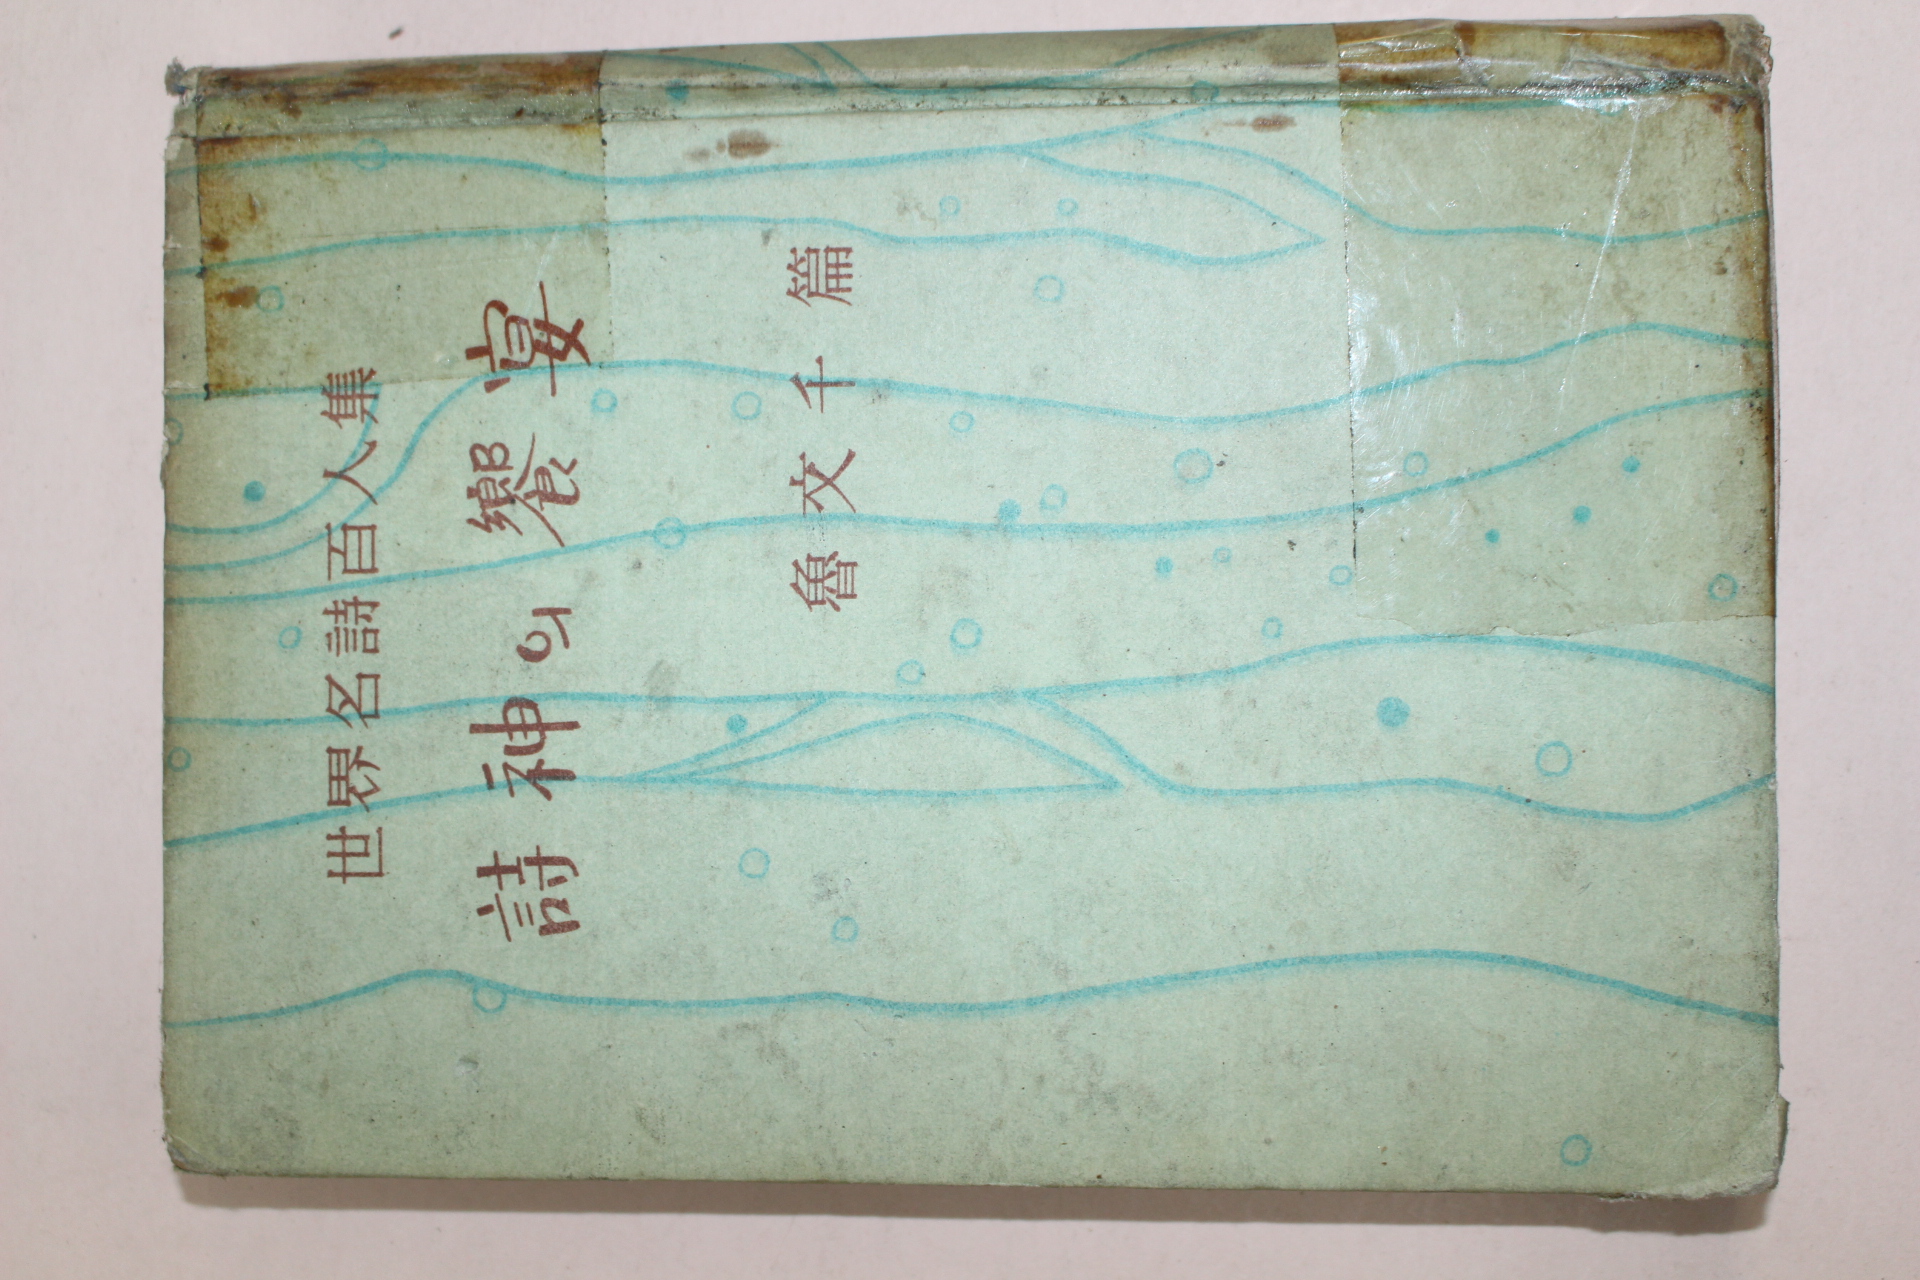 世界名詩百人集
詩神의 饗宴
魯文千篇